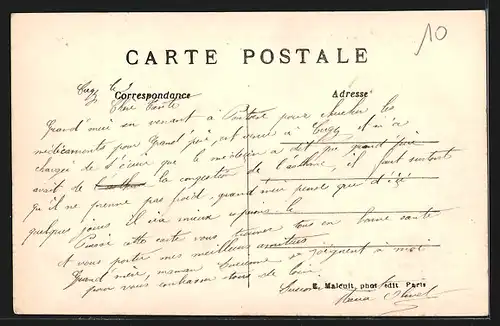 10
CARTE POSTALE
Correspondance
Adresse
Chère tante
Grand'mère en venant à Pontoise pour chercher les
médicaments pour Grand'père, est venue à Cergy et m'a
chargée de t'écrire que le médecin a dit que grand père
avait de la congestion de l'asthme, il faut surtout
qu'il ne prenne pas froid, grand mère pense que d'ici
quelques jours il ira mieux
Puisse cette carte vous trouver tous en bonne santé
et vous porter mes meilleures amitiés
Grand mère, maman se joignent à moi
pour vous embrasser tous de loin.
E. Malcuit, phot édit Paris